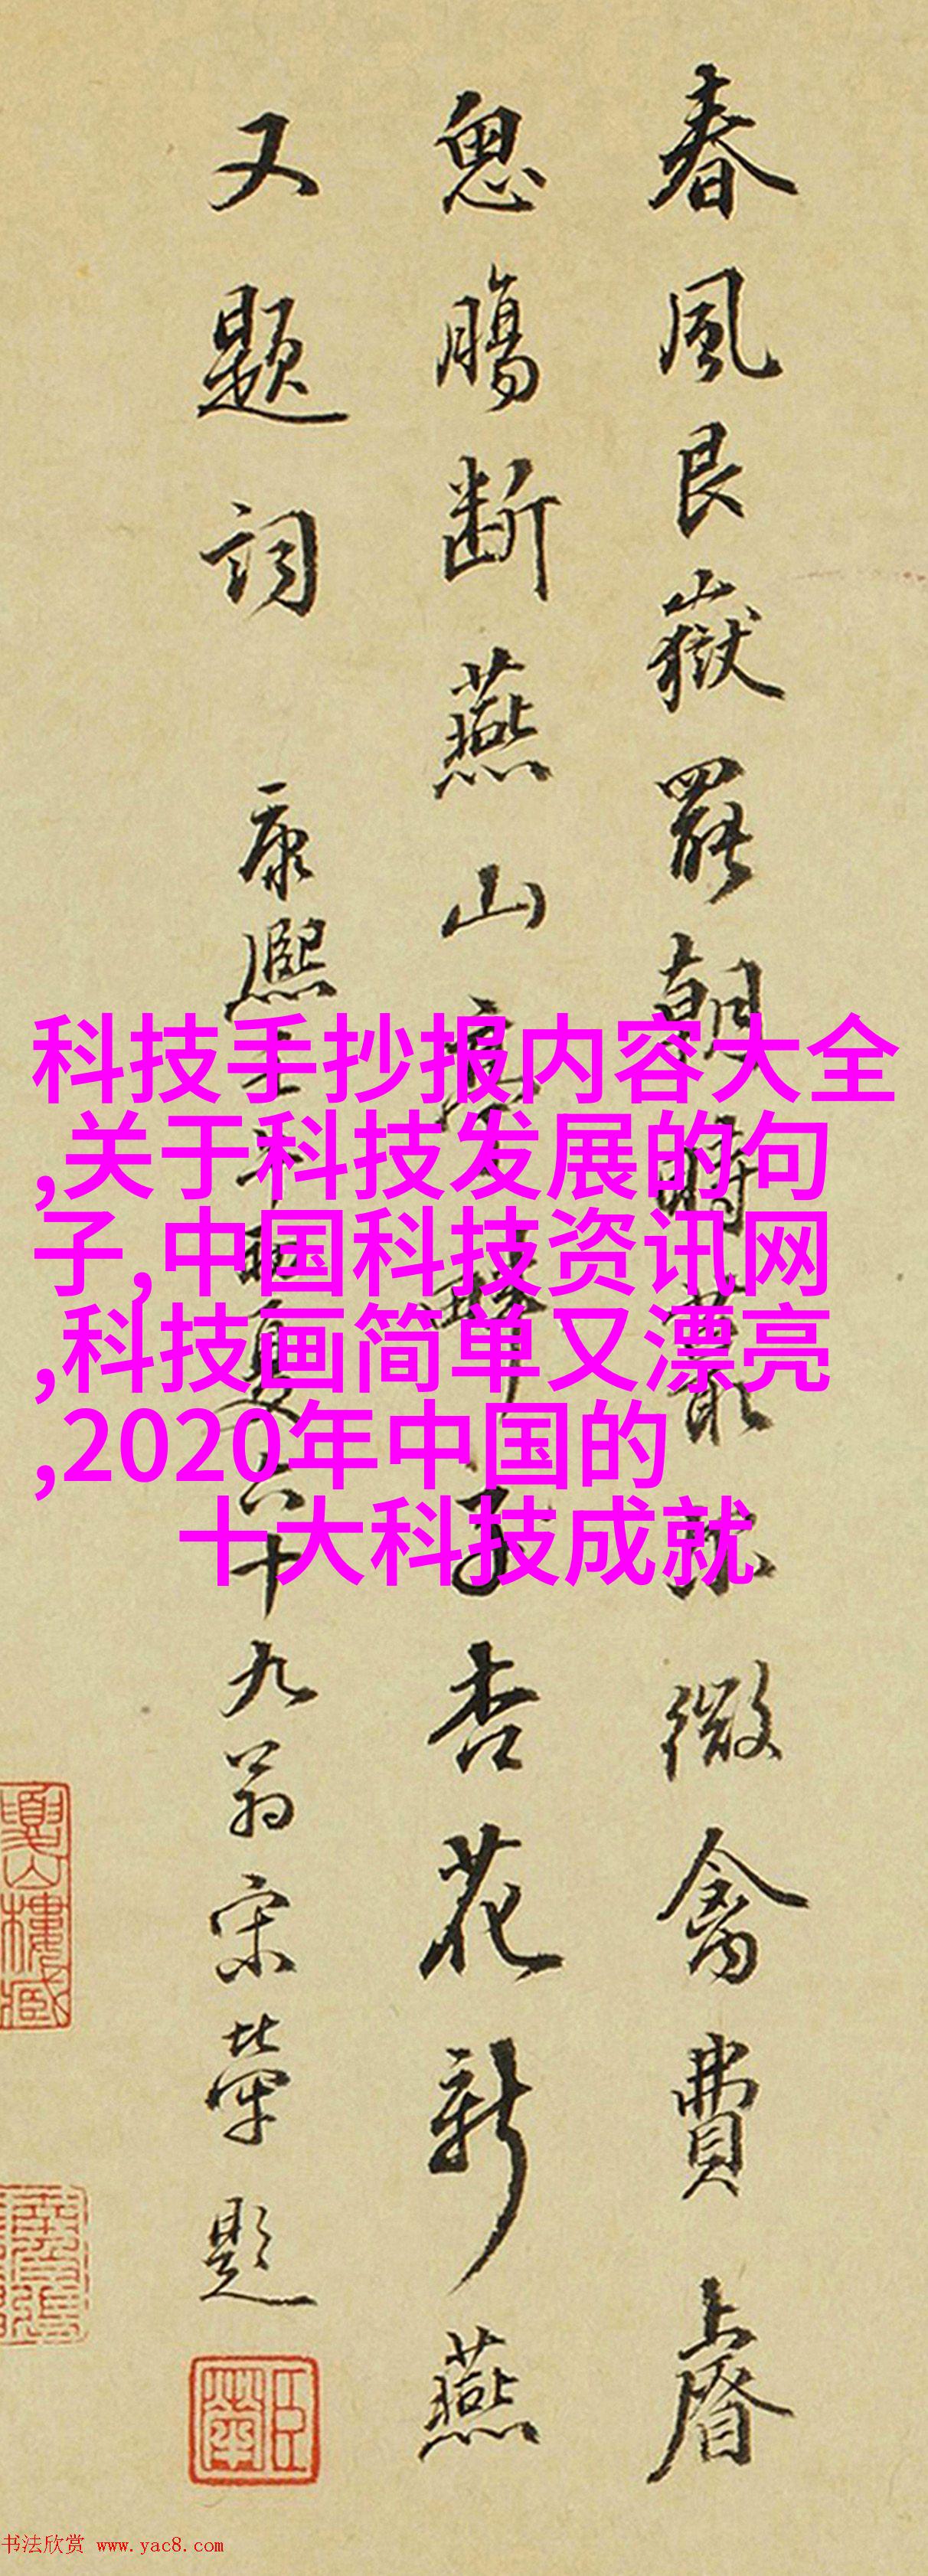 春風艮嶽罷朝時蕞尔微禽費睿
思腸斷燕山亭子杏花新燕
又題詞 康熙壬午夏六十九翁宋犖題
臣犖
科技手抄报内容大全
,关于科技发展的句
子,中国科技资讯网
,科技画简单又漂亮
,2020年中国的
十大科技成就
书法欣赏 www.yac8.com